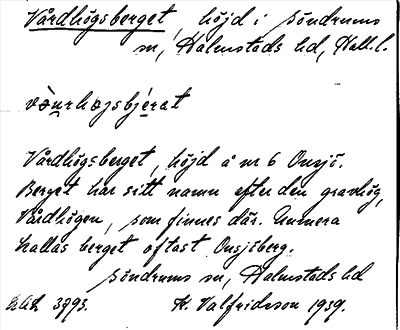 Vårdhögsberget, höjd i Söndrums
sn, Halmstads hd, Hall. l.
Vårdhögsberget, höjd å nr 6 Onsjö.
Berget har sitt namn efter den gravhög,
Vårdhögen, som finnes där. Numera
kallas berget oftast Onsjöberg.
Söndrums sn, Halmstads hd
3993. K. Valfridsson 1939.